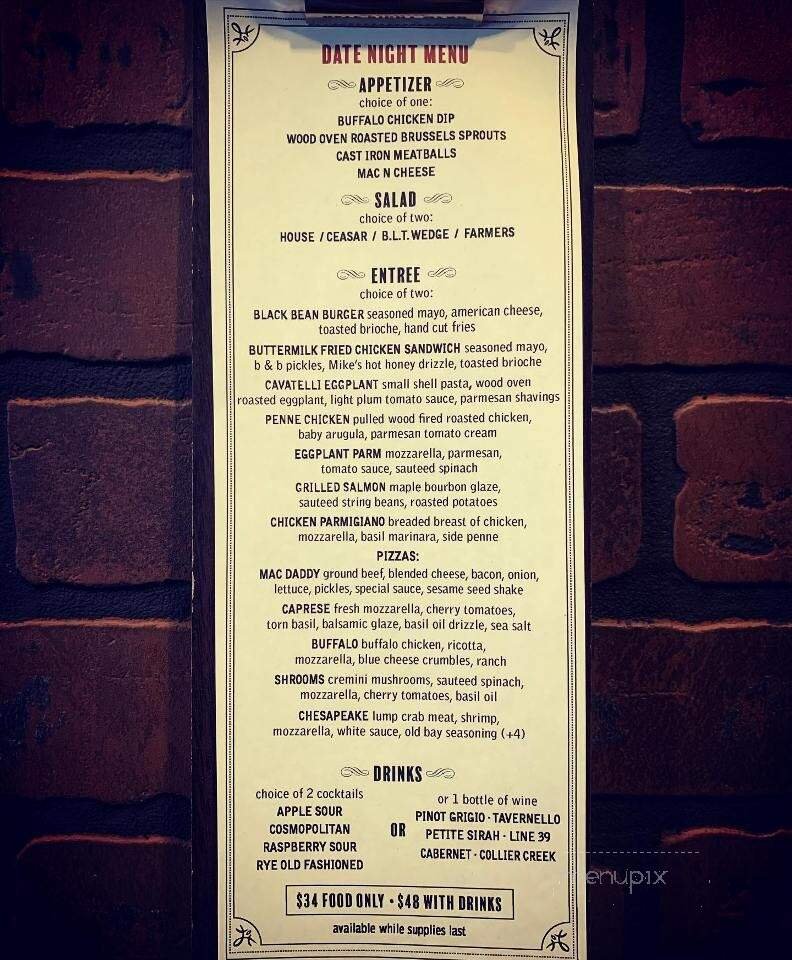 DATE NIGHT MENU
APPETIZER
choice of one:
BUFFALO CHICKEN DIP
WOOD OVEN ROASTED BRUSSELS SPROUTS
CAST IRON MEATBALLS
MAC N CHEESE
SALAD
choice of two:
HOUSE / CEASAR / B.L.T. WEDGE / FARMERS
ENTREE
choice of two:
BLACK BEAN BURGER seasoned mayo, american cheese,
toasted brioche, hand cut fries
BUTTERMILK FRIED CHICKEN SANDWICH seasoned mayo,
b & b pickles, Mike's hot honey drizzle, toasted brioche
CAVATELLI EGGPLANT small shell pasta, wood oven
roasted eggplant, light plum tomato sauce, parmesan shavings
PENNE CHICKEN pulled wood fired roasted chicken,
baby arugula, parmesan tomato cream
EGGPLANT PARM mozzarella, parmesan,
tomato sauce, sauteed spinach
GRILLED SALMON maple bourbon glaze,
sauteed string beans, roasted potatoes
CHICKEN PARMIGIANO breaded breast of chicken,
mozzarella, basil marinara, side penne
PIZZAS:
MAC DADDY ground beef, blended cheese, bacon, onion,
lettuce, pickles, special sauce, sesame seed shake
CAPRESE fresh mozzarella, cherry tomatoes,
torn basil, balsamic glaze, basil oil drizzle, sea salt
BUFFALO buffalo chicken, ricotta,
mozzarella, blue cheese crumbles, ranch
SHROOMS cremini mushrooms, sauteed spinach,
mozzarella, cherry tomatoes, basil oil
CHESAPEAKE lump crab meat, shrimp,
mozzarella, white sauce, old bay seasoning (+4)
DRINKS
choice of 2 cocktails
APPLE SOUR
COSMOPOLITAN
RASPBERRY SOUR
RYE OLD FASHIONED
OR
or 1 bottle of wine
PINOT GRIGIO · TAVERNELLO
PETITE SIRAH · LINE 39
CABERNET · COLLIER CREEK
$34 FOOD ONLY • $48 WITH DRINKS
available while supplies last
menupix